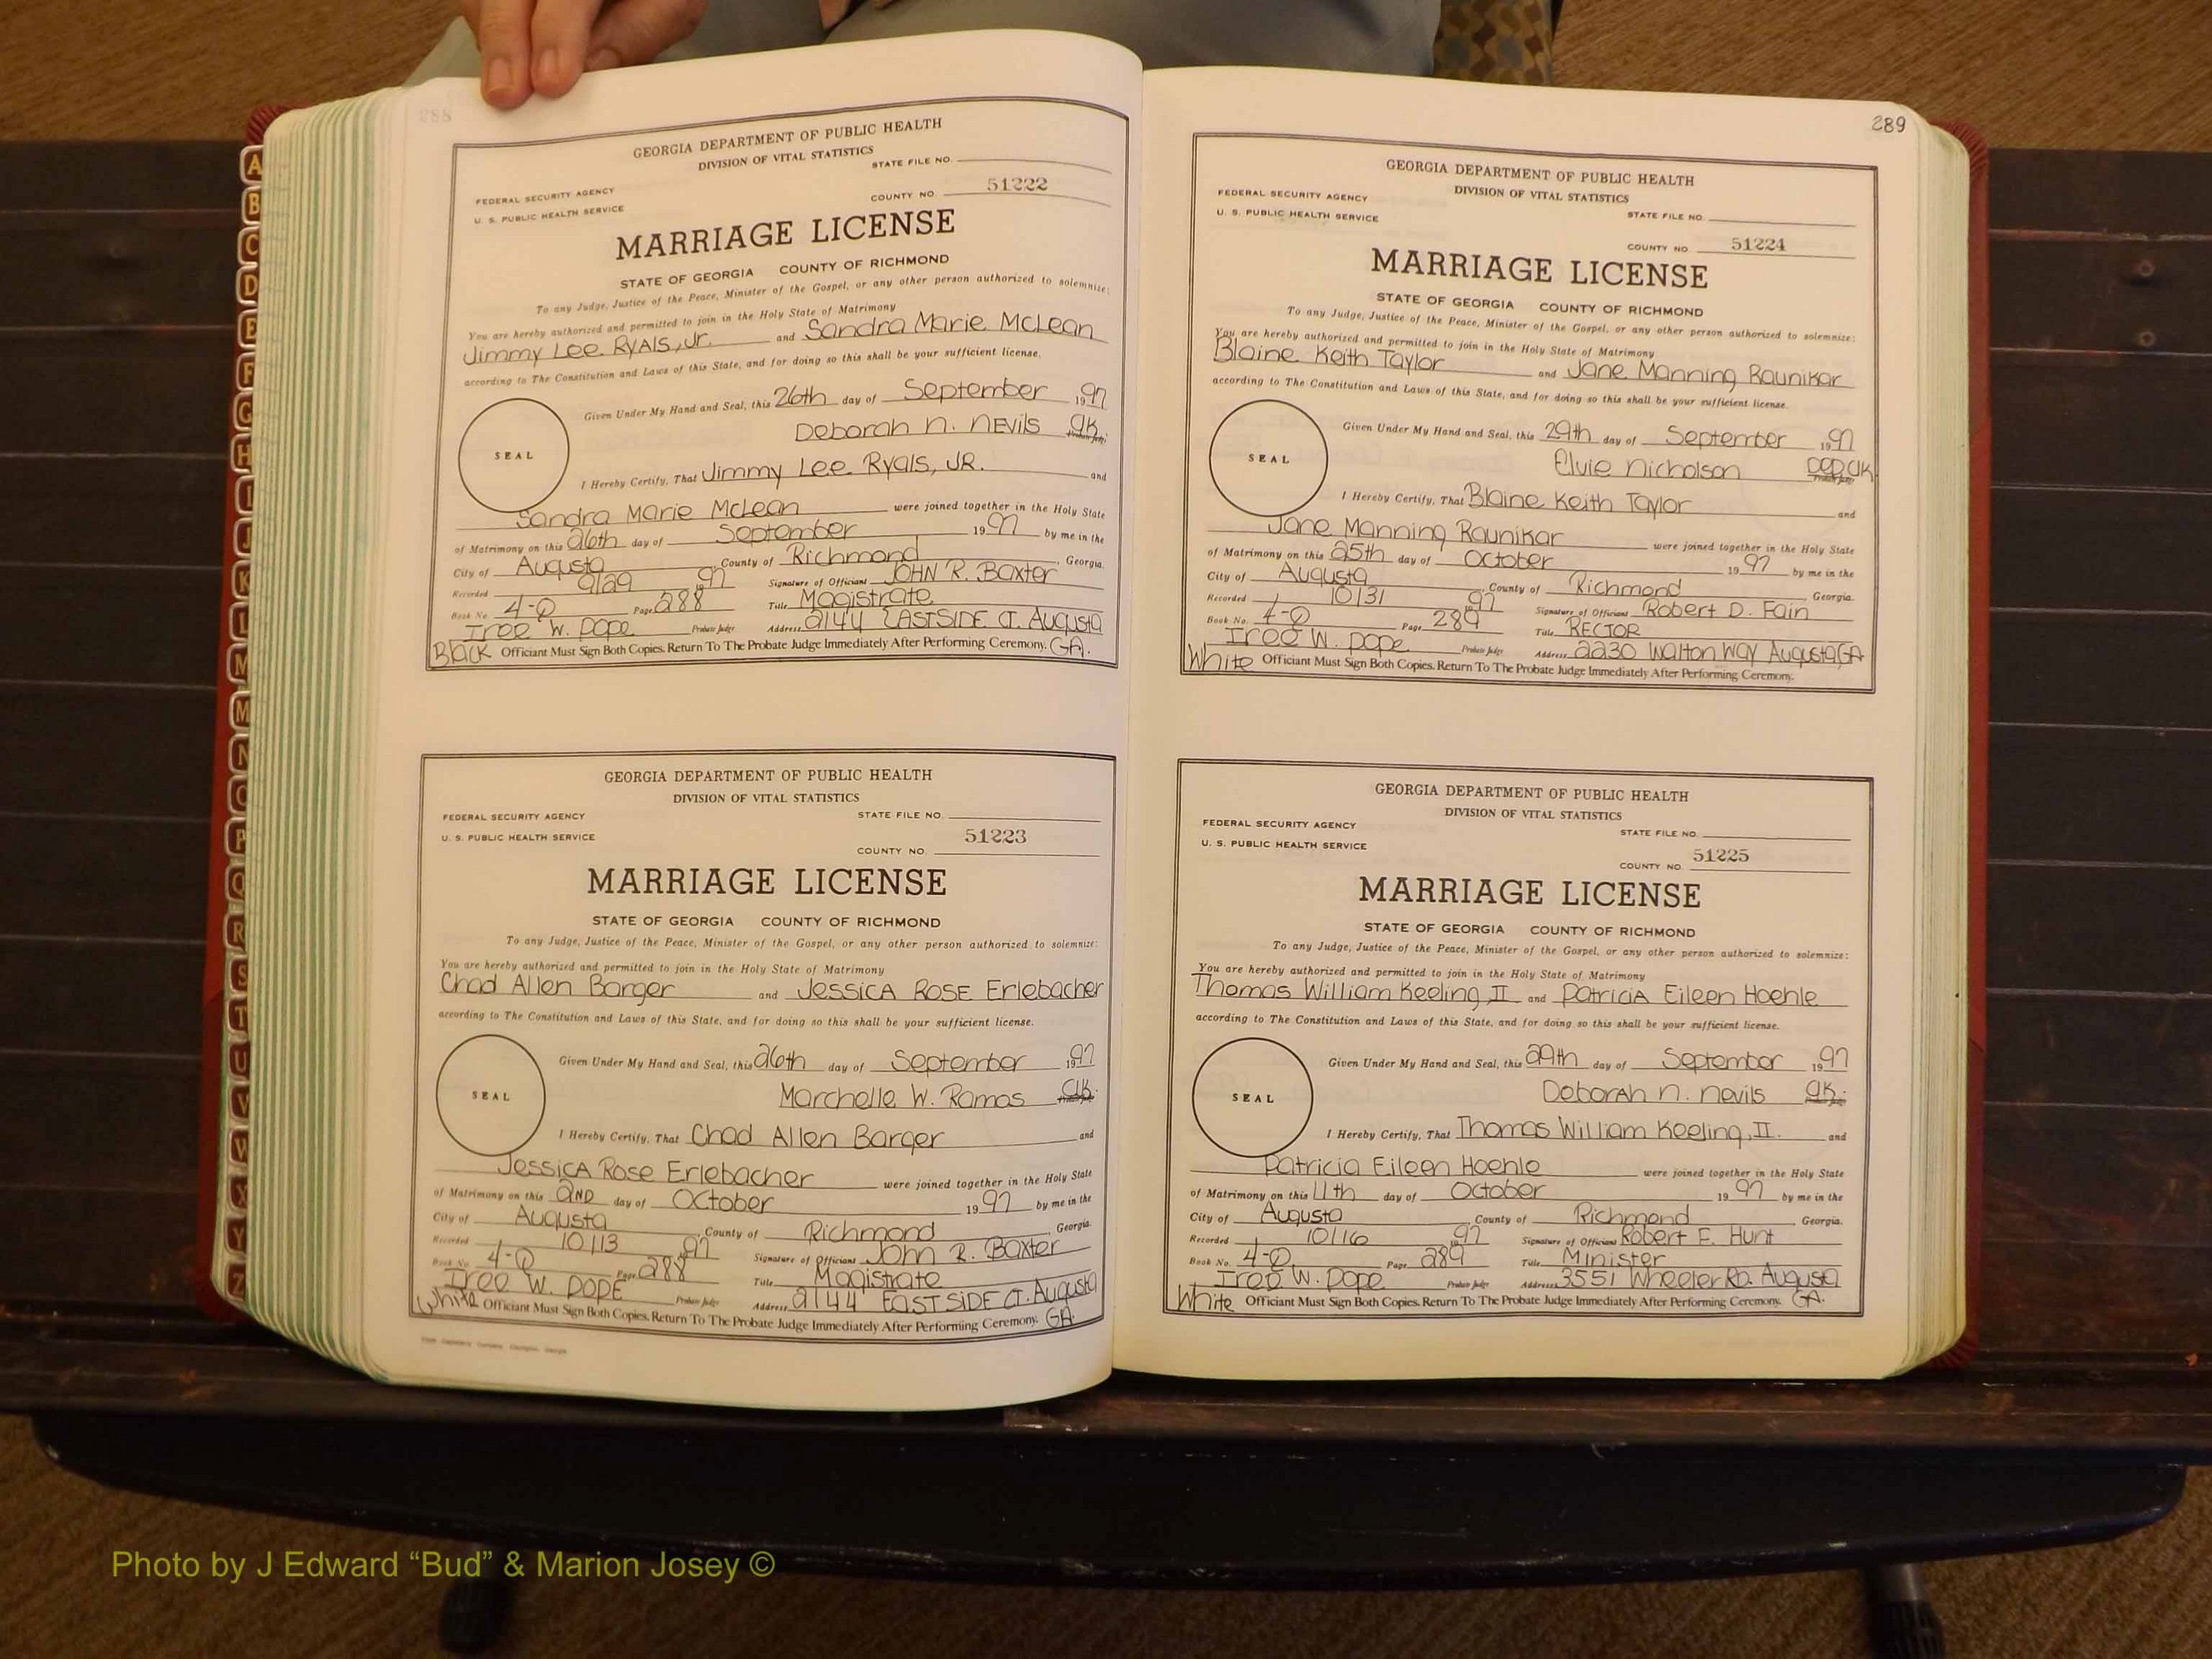 288
GEORGIA DEPARTMENT OF PUBLIC HEALTH
DIVISION OF VITAL STATISTICS
STATE FILE NO.
FEDERAL SECURITY AGENCY
COUNTY NO. 51222
U. S. PUBLIC HEALTH SERVICE
MARRIAGE LICENSE
STATE OF GEORGIA COUNTY OF RICHMOND
To any Judge, Justice of the Peace, Minister of the Gospel, or any other person authorized to solemnize:
You are hereby authorized and permitted to join in the Holy State of Matrimony
Jimmy Lee Ryals, Jr. and Sandra Marie McLean
according to The Constitution and Laws of this State, and for doing so this shall be your sufficient license.
Given Under My Hand and Seal, this 26th day of September 1997
SEAL
Deborah N. Nevils Clk.
I Hereby Certify, That Jimmy Lee Ryals, JR. and
Sandra Marie McLean were joined together in the Holy State
of Matrimony on this 26th day of September 1997 by me in the
City of Augusta, County of Richmond, Georgia.
Recorded 9/29 1997 Signature of Officiant JOHN R. Baxter
Book No. 4-Q Page 288 Title Magistrate
Iree W. Pope Probate Judge Address 2144 EASTSIDE CT. Augusta
Black Officiant Must Sign Both Copies. Return To The Probate Judge Immediately After Performing Ceremony. GA.
GEORGIA DEPARTMENT OF PUBLIC HEALTH
DIVISION OF VITAL STATISTICS
FEDERAL SECURITY AGENCY
STATE FILE NO.
U. S. PUBLIC HEALTH SERVICE
COUNTY NO. 51223
MARRIAGE LICENSE
STATE OF GEORGIA COUNTY OF RICHMOND
To any Judge, Justice of the Peace, Minister of the Gospel, or any other person authorized to solemnize:
You are hereby authorized and permitted to join in the Holy State of Matrimony
Chad Allen Barger and Jessica Rose Erlebacher
according to The Constitution and Laws of this State, and for doing so this shall be your sufficient license.
Given Under My Hand and Seal, this 26th day of September 1997
SEAL
Marchelle W. Ramos Clk.
I Hereby Certify, That Chad Allen Barger and
Jessica Rose Erlebacher were joined together in the Holy State
of Matrimony on this 2ND day of October 1997 by me in the
City of Augusta, County of Richmond, Georgia.
Recorded 10/13 1997 Signature of Officiant John R. Baxter
Book No. 4-Q Page 288 Title Magistrate
Iree W. POPE Probate Judge Address 2144 EAST SIDE CT. Augusta
White Officiant Must Sign Both Copies. Return To The Probate Judge Immediately After Performing Ceremony. GA.
289
GEORGIA DEPARTMENT OF PUBLIC HEALTH
DIVISION OF VITAL STATISTICS
FEDERAL SECURITY AGENCY
STATE FILE NO.
U. S. PUBLIC HEALTH SERVICE
COUNTY NO. 51224
MARRIAGE LICENSE
STATE OF GEORGIA COUNTY OF RICHMOND
To any Judge, Justice of the Peace, Minister of the Gospel, or any other person authorized to solemnize:
You are hereby authorized and permitted to join in the Holy State of Matrimony
Blaine Keith Taylor and Jane Manning Raunikar
according to The Constitution and Laws of this State, and for doing so this shall be your sufficient license.
Given Under My Hand and Seal, this 29th day of September 1997
SEAL
Elvie Nicholson Dep. Clk
I Hereby Certify, That Blaine Keith Taylor and
Jane Manning Raunikar were joined together in the Holy State
of Matrimony on this 25th day of October 1997 by me in the
City of Augusta, County of Richmond Georgia.
Recorded 10/31 1997 Signature of Officiant Robert D. Fain
Book No. 4-Q Page 289 Title RECTOR
Iree W. Pope Probate Judge Address 2230 Walton Way Augusta, GA
White Officiant Must Sign Both Copies. Return To The Probate Judge Immediately After Performing Ceremony.
GEORGIA DEPARTMENT OF PUBLIC HEALTH
DIVISION OF VITAL STATISTICS
FEDERAL SECURITY AGENCY
STATE FILE NO.
U. S. PUBLIC HEALTH SERVICE
COUNTY NO. 51225
MARRIAGE LICENSE
STATE OF GEORGIA COUNTY OF RICHMOND
To any Judge, Justice of the Peace, Minister of the Gospel, or any other person authorized to solemnize:
You are hereby authorized and permitted to join in the Holy State of Matrimony
Thomas William Keeling, II and Patricia Eileen Hoehle
according to The Constitution and Laws of this State, and for doing so this shall be your sufficient license.
Given Under My Hand and Seal, this 29th day of September 1997
SEAL
Deborah N. Nevils Clk.
I Hereby Certify, That Thomas William Keeling, II. and
Patricia Eileen Hoehle were joined together in the Holy State
of Matrimony on this 11th day of October 1997 by me in the
City of Augusta, County of Richmond Georgia.
Recorded 10/16 1997 Signature of Officiant Robert E. Hunt
Book No. 4-Q Page 289 Title Minister
Iree W. Pope Probate Judge Address 3551 Wheeler Rd. Augusta
White Officiant Must Sign Both Copies. Return To The Probate Judge Immediately After Performing Ceremony. GA.
A
B
C
D
E
F
G
H
I
J
K
L
M
M
N
O
P
Q
R
S
T
U
V
W
X
Y
Z
Photo by J Edward “Bud” & Marion Josey ©